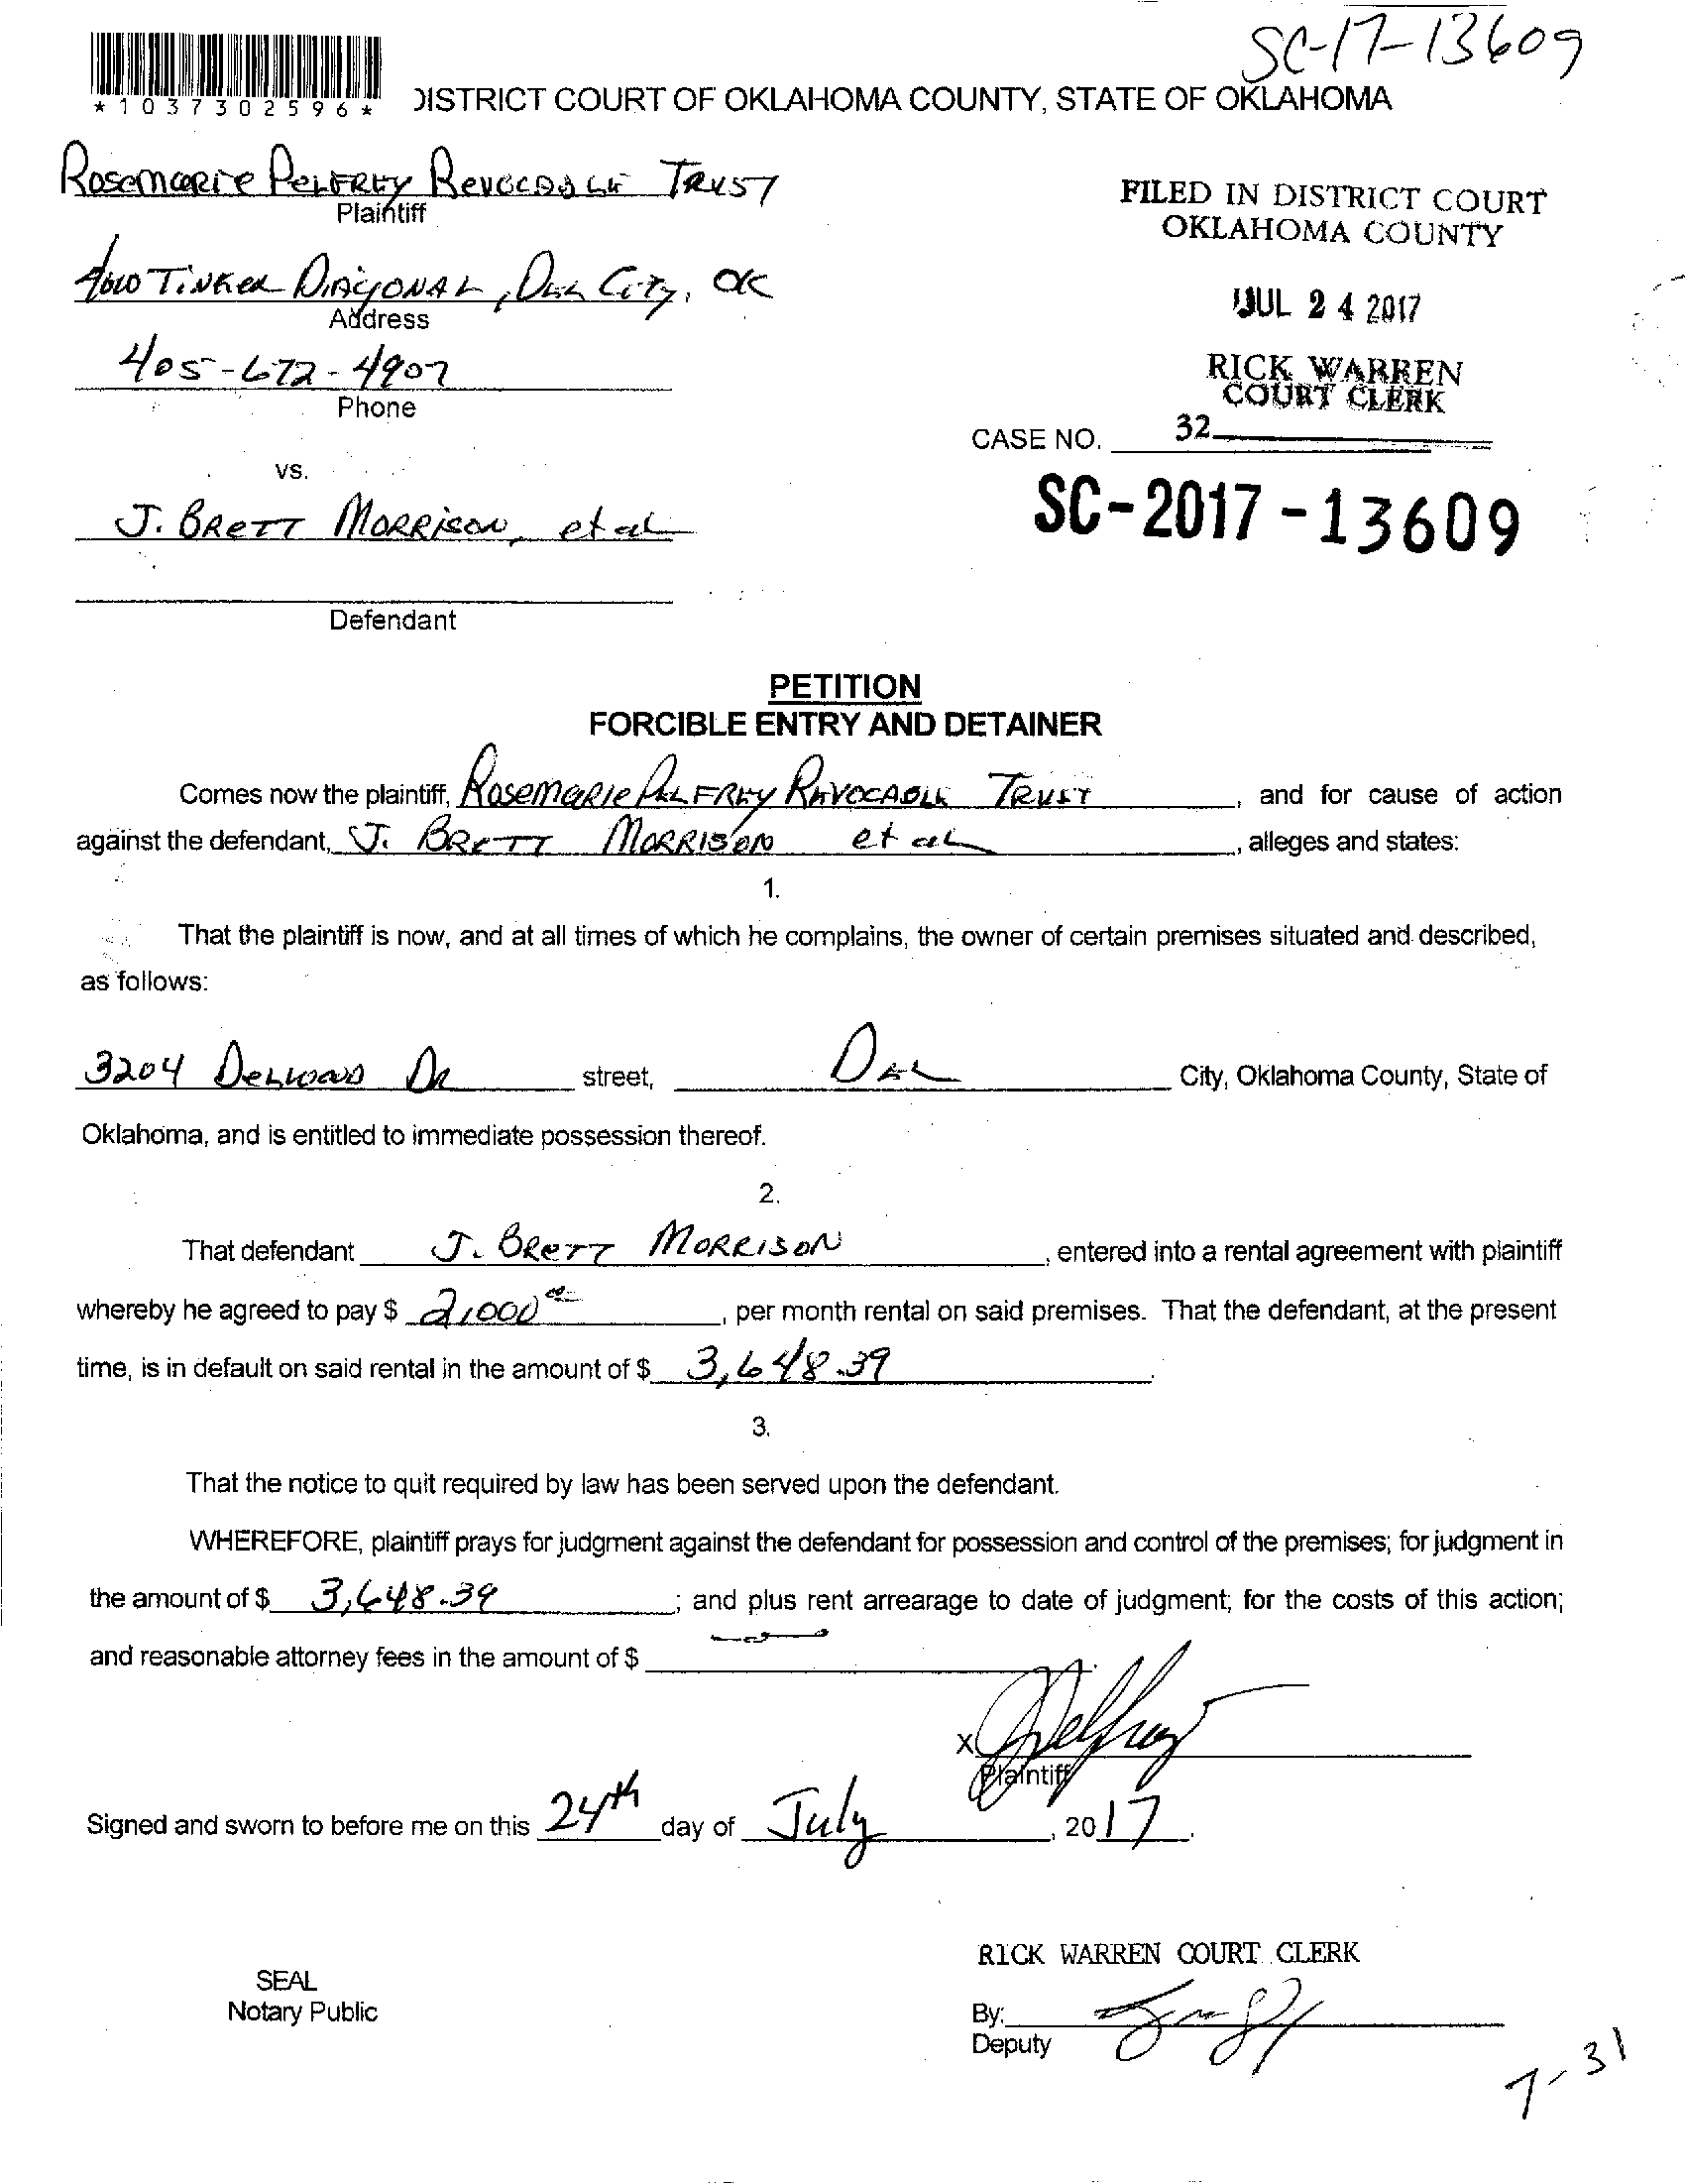 SC-17-13609
*1037302596*
DISTRICT COURT OF OKLAHOMA COUNTY, STATE OF OKLAHOMA
Rosemarie Pelfrey Revocable Trust
Plaintiff
FILED IN DISTRICT COURT
OKLAHOMA COUNTY
Tinker Diagonal, Del City, OK
Address
JUL 24 2017
405-672-4907
Phone
RICK WARREN
COURT CLERK
CASE NO. 32
vs.
SC-2017-13609
J. Brett Morrison, et al
Defendant
PETITION
FORCIBLE ENTRY AND DETAINER
Comes now the plaintiff, Rosemarie Pelfrey Revocable Trust, and for cause of action
against the defendant, J. Brett Morrison et al, alleges and states:
1.
That the plaintiff is now, and at all times of which he complains, the owner of certain premises situated and described,
as follows:
3204 Delwood Dr street, Del City, Oklahoma County, State of
Oklahoma, and is entitled to immediate possession thereof.
2.
That defendant J. Brett Morrison, entered into a rental agreement with plaintiff
whereby he agreed to pay $ 2,000, per month rental on said premises. That the defendant, at the present
time, is in default on said rental in the amount of $ 3,648.39.
3.
That the notice to quit required by law has been served upon the defendant.
WHEREFORE, plaintiff prays for judgment against the defendant for possession and control of the premises; for judgment in
the amount of $ 3,648.39; and plus rent arrearage to date of judgment; for the costs of this action;
and reasonable attorney fees in the amount of $
X Pelfrey
Plaintiff
Signed and sworn to before me on this 24th day of July, 2017.
RICK WARREN COURT CLERK
SEAL
Notary Public
By:
Deputy
7-31